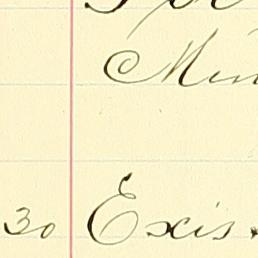 Min
30 Exis.